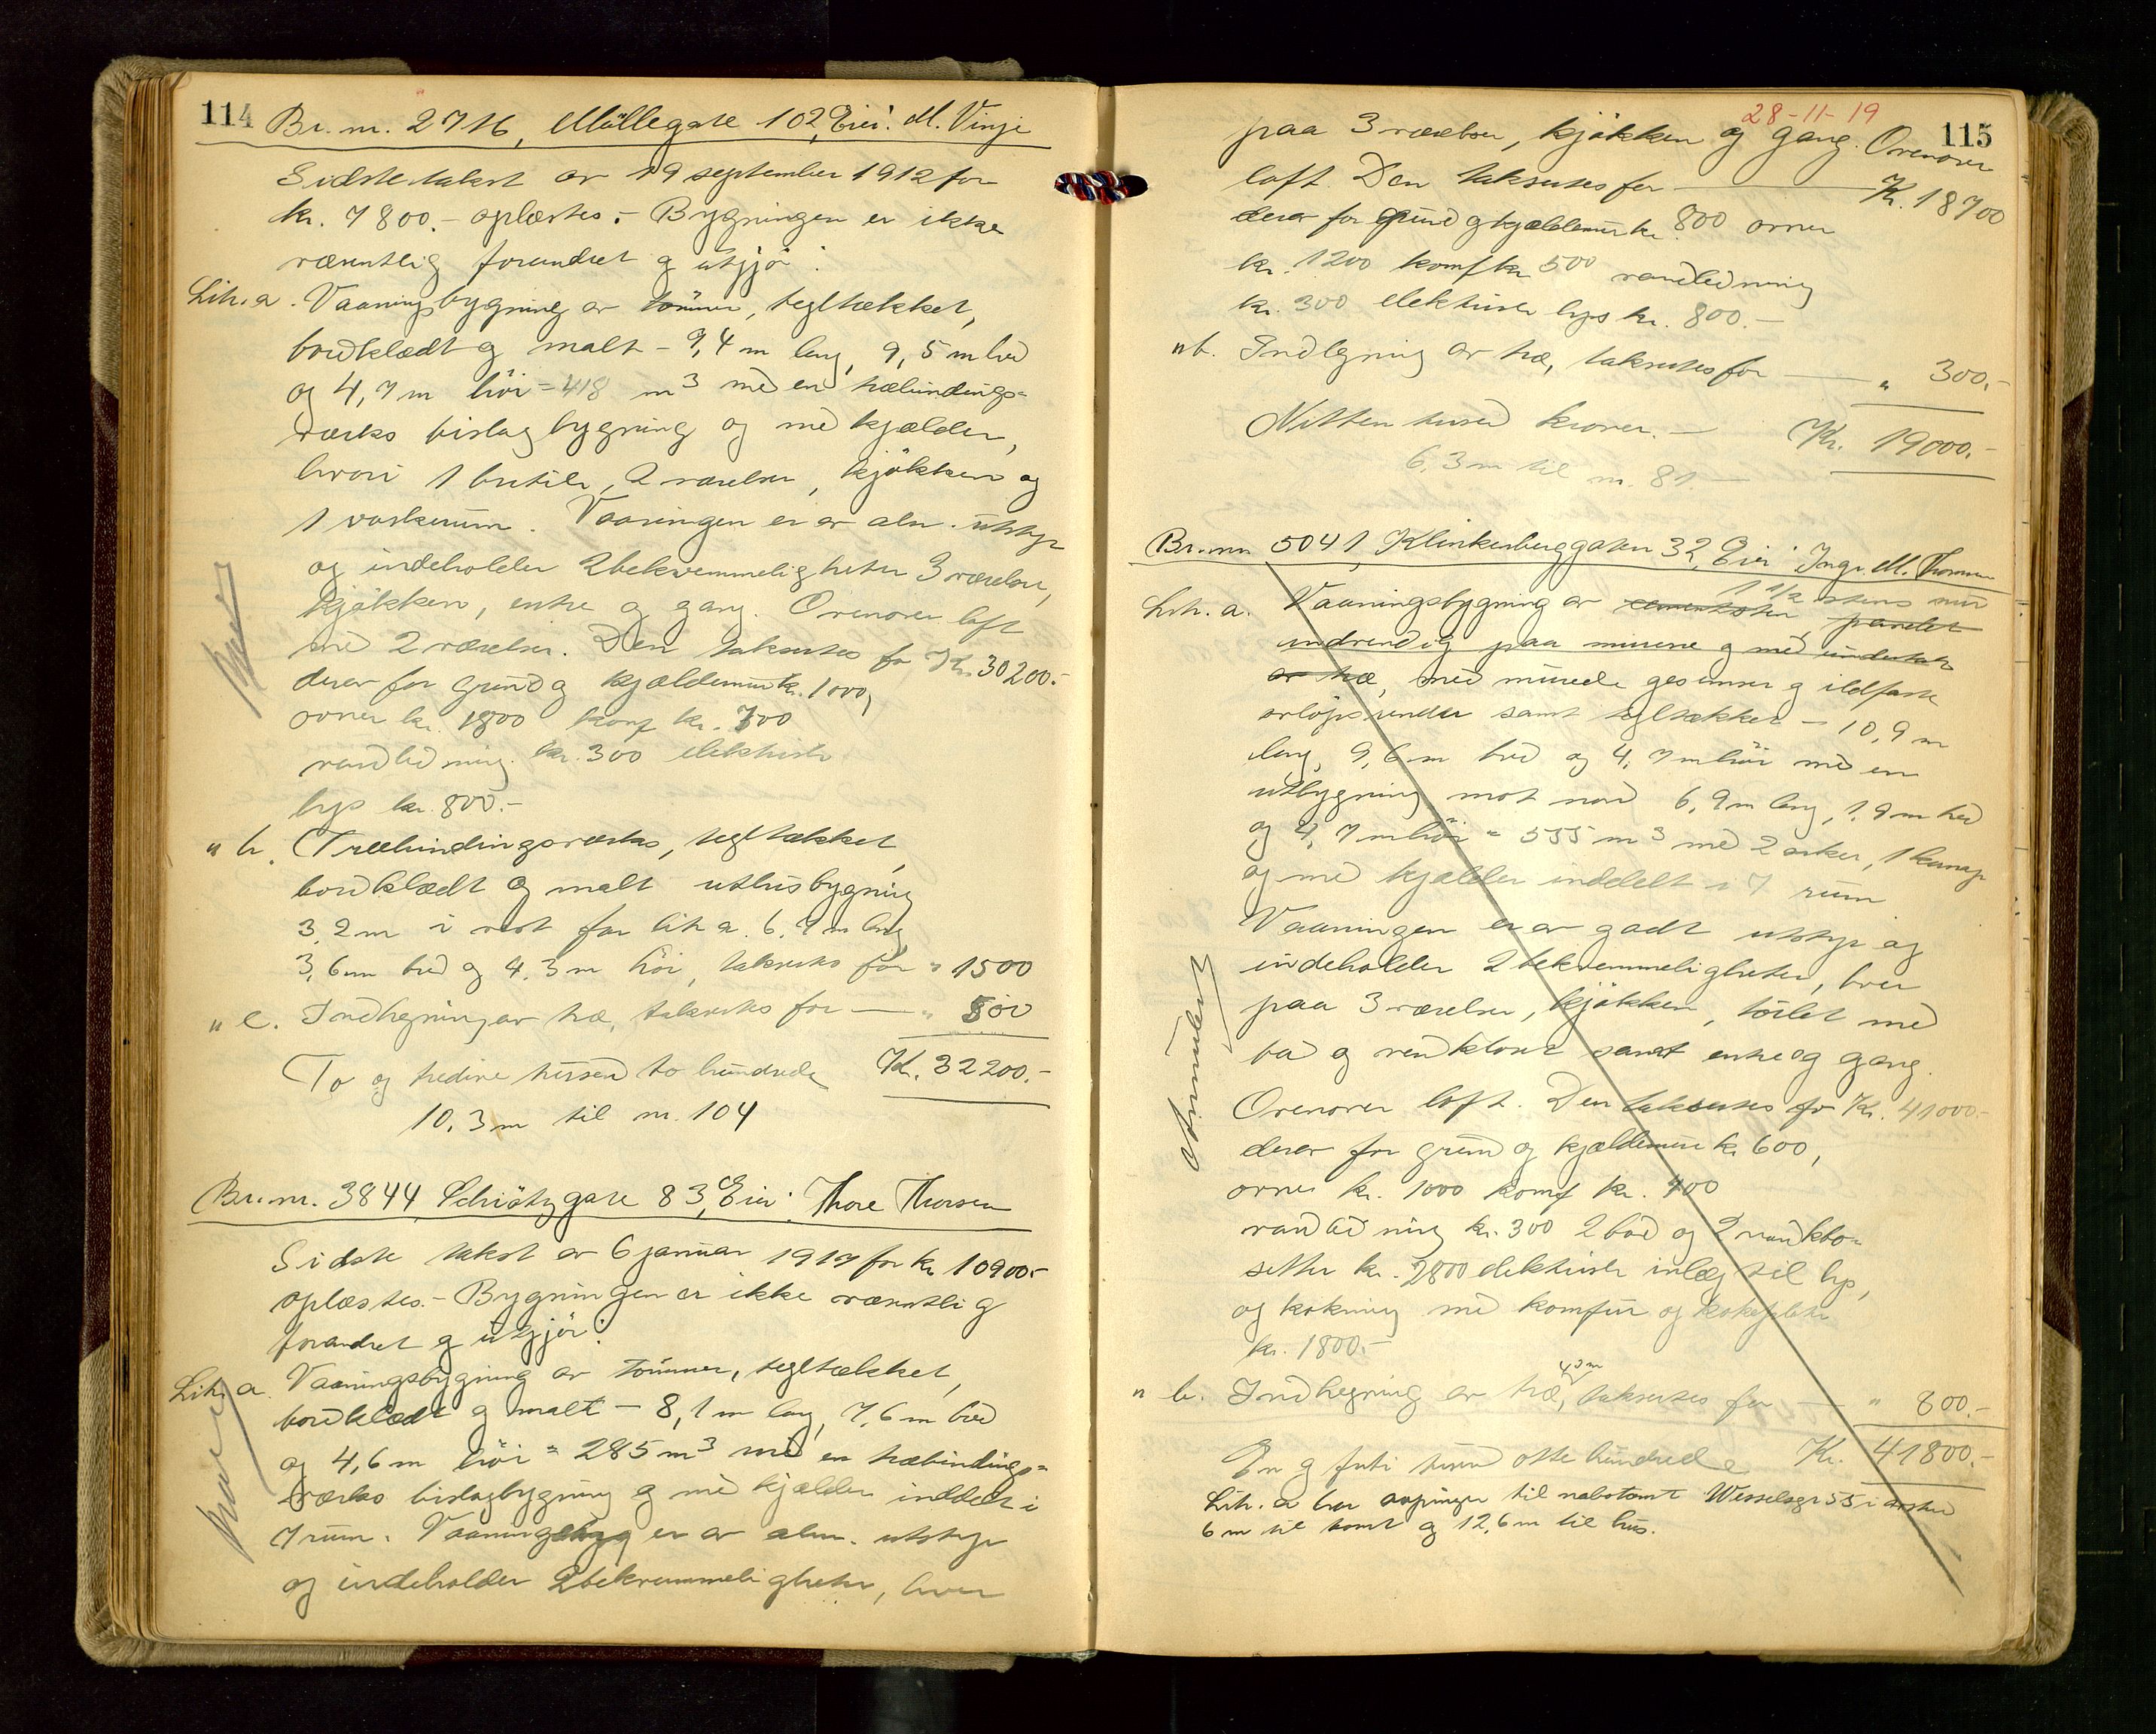 114
Br. nr. 2716, Møllegate 102, Eier: M. Vinje
Sidste takst av 19 september 1912 for
kr. 7800.- oplæstes.- Bygningen er ikke
væsentlig forandret og utgjør:
Lit. a. Vaaningsbygning av tømmer, tegltækket,
bordklædt og malt - 9,4 m lang, 9,5 m bred
og 4,7 m høi = 418 m³ med en træbindings=
verks bislagbygning og med kjælder,
hvori 1 butik, 2 værelser, kjøkken og
1 vaskerum. Vaaningen er av alm. utstyr
og indeholder 2 bekvemmeligheter 3 værelser,
kjøkken, entre og gang. Ovenover loft
med 2 værelser. Den takseres for Kr. 30200.-
derav for grund og kjældermur kr. 1000,
ovner kr. 1800 komf kr. 700
vandledning kr. 300 elektrisk
lys kr. 800.-
" b. Træbindingsverks, tegltækket,
bordklædt og malt uthusbygning
3,2 m i vest for lit a. 6,7 m lang,
3,6 m bred og 4,3 m høi, takseres for " 1500
" c. Indhegning av træ, takseres for — " 500
To og tredive tusen to hundrede Kr. 32200.-
10,3 m til nr. 104
Br. nr. 3844 Schiøtzgate 83, Eier: Thore Thorsen
Sidste takst av 6 januar 1917 for kr. 10900.-
oplæstes.- Bygningen er ikke væsentlig
forandret og utgjør:
Lit. a. Vaaningsbygning av tømmer, tegltækket,
bordklædt og malt - 8,1 m lang, 7,6 m bred
og 4,6 m høi = 285 m³ med en træbindings=
verks bislagbygning og med kjælder inddelt i
7 rum. Vaaningen er av alm. utstyr
og indeholder 2 bekvemmeligheter, hver
28-11-19
115
paa 3 værelser, kjøkken og gang. Ovenover
loft. Den takseres for — Kr. 18700
derav for grund og kjældermur kr. 800 ovner
kr. 1200 komf kr. 500 vandledning
kr. 300 elektrisk lys kr. 800.-
" b. Indhegning av træ, takseres for — " 300.-
Nitten tusen kroner.- Kr. 19000.-
6,3 m til nr. 81.-
Br. nr. 5041, Klinkenberggaten 32, Eier: Ingv. M. Thorsen
1 1/2 stens mur
Lit. a. Vaaningsbygning av cementsten, pudset
indvendig paa murene og med undertak
av træ, med murede gesimser og ildfaste
avløpsrender samt tegltækket - 10,9 m
lang, 9,6 m bred og 4,7 m høi med en
utbygning mot nord 6,9 m lang, 1,9 m bred
og 4,7 m høi = 555 m³ med 2 arker, 1 karnap
og med kjælder inddelt i 7 rum
Vaaningen er av godt utstyr og
indeholder 2 bekvemmeligheter, hver
paa 3 værelser, kjøkken, toilet med
bad og vandklosett samt entre og gang.
Ovenover loft. Den takseres for Kr. 41000.-
derav for grund og kjældermur kr. 600,
ovner kr. 1000 komf kr. 400
vandledning kr. 300 2 bad og 2 vandklo=
setter kr. 2800 elektrisk inlæg til lys,
og kokning med komfur og kokeplate
kr. 1800.-
" b. Indhegning av træ, 40 m takseres for — " 800.-
En og førti tusen otte hundrede Kr. 41800.-
Lit. a har aapninger til nabotomt Wesselsgt 55 i avstand
6 m til tomt og 12,6 m til hus.